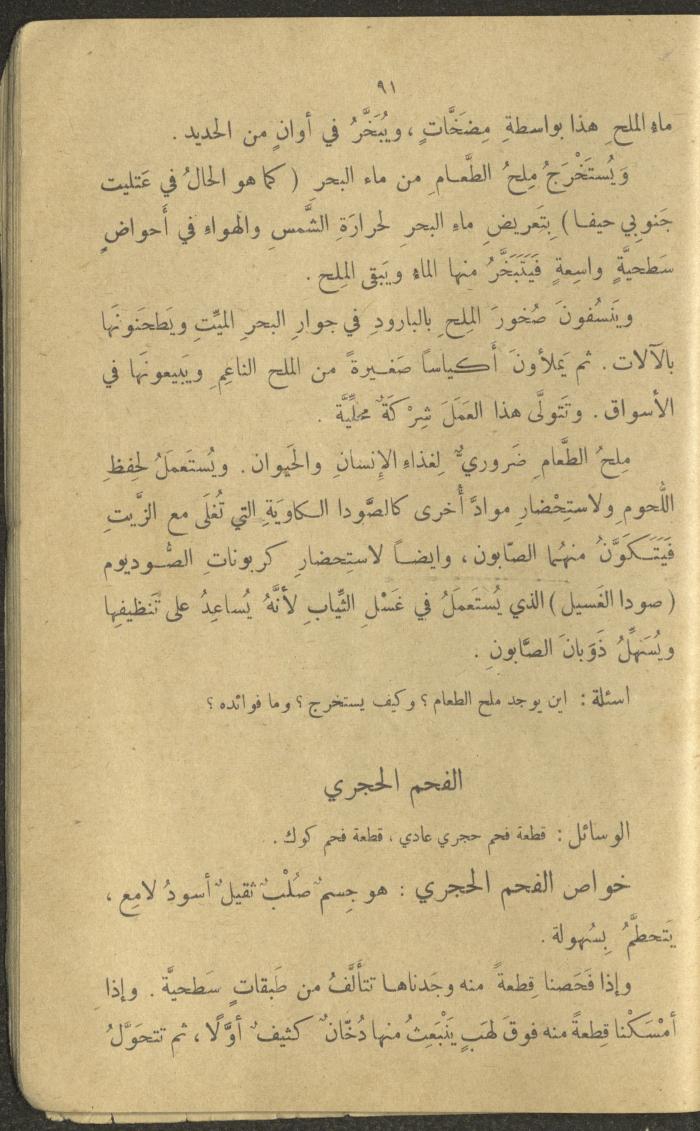 ٩١
ماءِ الملحِ هذا بواسطةِ مِضَخَّاتٍ ، ويُبَخَّرُ في أوانٍ من الحديد .
وَيُستَخْرَجُ مِلحُ الطَّعـامِ من ماء البحرِ ( كما هو الحالُ في عَتليت
جَنوبي حيفـا ) بِتَعريضِ ماءِ البحرِ لحرارَةِ الشَّمسِ والهواءِ في أَحواضٍ
سَطحيَّةٍ واسِعةٍ فَيَتَبَخَّرُ منها الماءُ ويَبَقى المِلح .
ويَنسُفونَ صُخورَ المِلحِ بالبارودِ في جوارِ البحرِ الميِّتِ ويَطحَنونَها
بالآلات . ثم يَملأونَ أَكياساً صَغـيرةً من الملح الناعِمِ ويَبيعونَها في
الأسواق . وتَتَولَّى هذا العَمَلَ شِرْكَةٌ محلِّيَّة .
مِلحُ الطَّعامِ ضَروريٌّ لِغذاءِ الإِنسانِ والحَيوان . ويُستَعمَلُ لحِفظِ
اللُّحومِ ولاستِحْضارِ موادَّ أُخرى كالصَّودا الـكاوِيَةِ التي تُغلَى مع الزَّيتِ
فَيَتَـكَوَّنُ منهُـما الصّابون ، وايضـاً لاستِحضارِ كربونات الصُّـوديوم
( صودا الغَسيل ) الذي يُستَعمَلُ في غَسْلِ الثِّيابِ لأنَّهُ يُساعِدُ على تَنظيفِها
ويُسَهِّلُ ذَوَبانَ الصَّابونِ .
اسئلة : اين يوجد ملح الطعام ؟ وكيف يستخرج ؟ وما فوائده ؟
الفحم الحجري
الوسائل : قطعة فحم حجري عادي ، قطعة فحم كوك .
خواص الفحم الحجري : هو جِسمٌ صُلْبٌ ثقيلٌ أسودُ لامِع ،
يَتحطَّمُ بِسُهولة .
وإذا فَحَصنا قِطعةً منه وجَدناهـا تتأَلَّفُ من طَبقاتٍ سَطحيَّة . وإذا
أمْسَكْنا قِطعةً منه فوقَ لهَبٍ يَنْبَعِثُ منها دُخّانٌ كثيفٌ أوَّلًا ، ثم تتحَوَّلُ